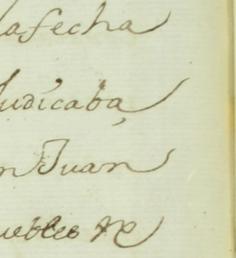 lafecha
judicaba
n Juan
uebles &c